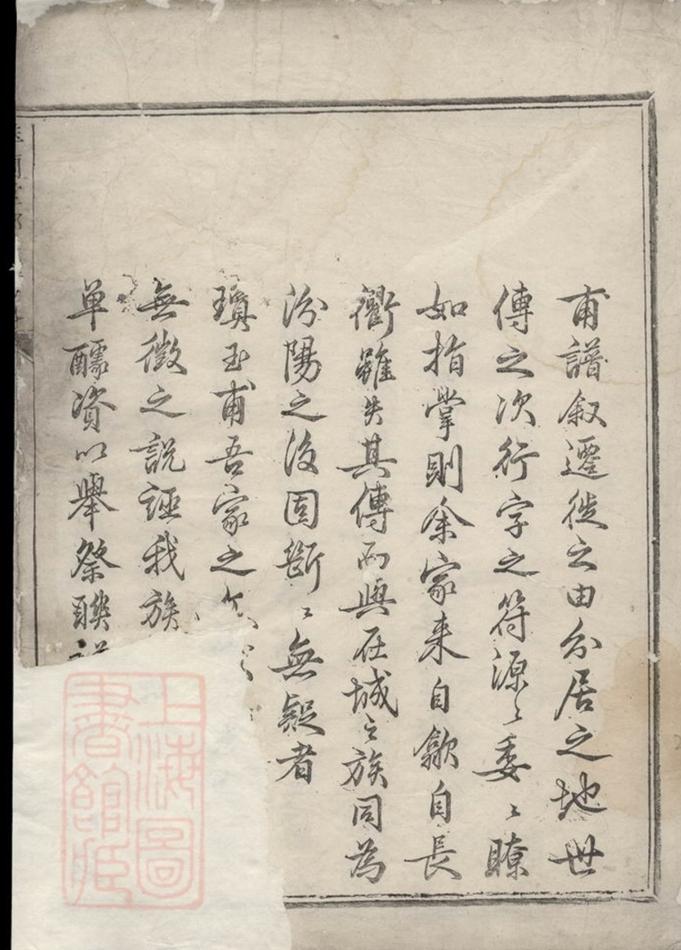 甫譜叙遷徙之由分居之地世
傳之次行字之符源々委々瞭
如指掌則余家来自歙自長
衢雖失其傳而與在城之族同為
汾陽之後固斷々無疑者
璸玉甫吾家之
無徵之說誣我族
单醵資以舉祭聯
上海圖
書館藏